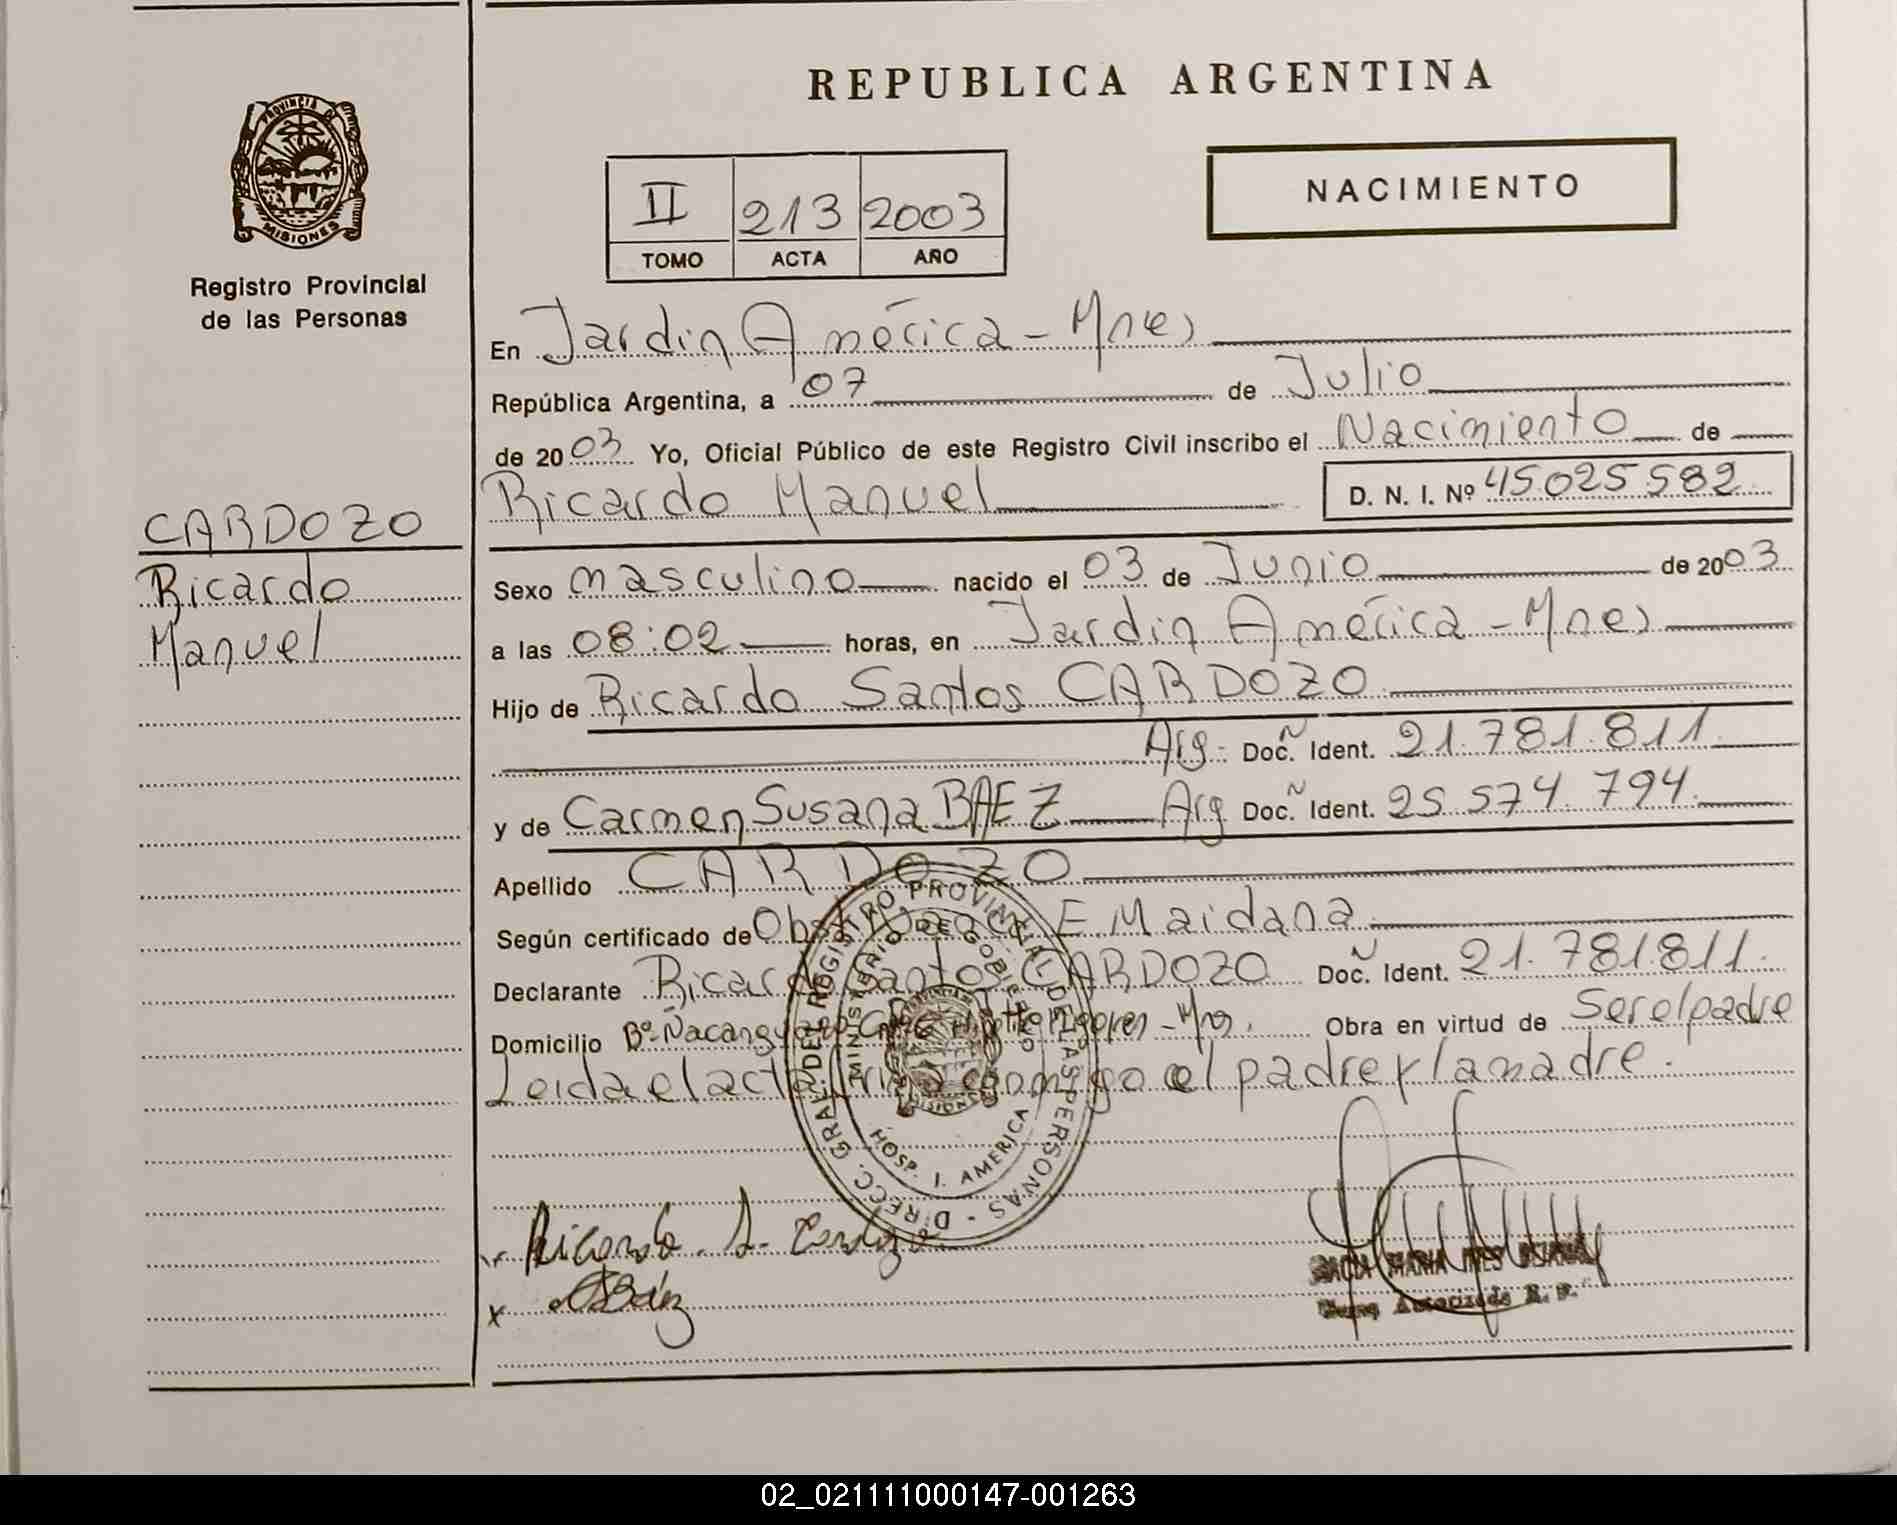 REPUBLICA ARGENTINA
PROVINCIA DE
MISIONES
Registro Provincial
de las Personas
NACIMIENTO
II 213 2003
TOMO ACTA AÑO
En Jardin América - Mnes
República Argentina, a 07 de Julio
de 2003 Yo, Oficial Público de este Registro Civil inscribo el Nacimiento de
Ricardo Manuel D. N. I. Nº 45025582
CARDOZO
Ricardo
Manuel
Sexo masculino nacido el 03 de Junio de 2003
a las 08:02 horas, en Jardin América - Mnes
Hijo de Ricardo Santos CARDOZO
Arg. Doc. Ident. 21.781.811.
y de Carmen Susana BAEZ Arg Doc. Ident. 25.574.794.
Apellido CARDOZO
Según certificado de Obst. E Maidana
Declarante Ricardo Santos CARDOZO Doc. Ident. 21.781.811.
Domicilio Bº Ñacanguazu Obra en virtud de Ser el padre
Leida el acta firma conmigo el padre y la madre.
DIRECC. GRAL. DEL REGISTRO PROVINCIAL DE LAS PERSONAS
MINISTERIO DE GOBIERNO
MISIONES
HOSP. J. AMERICA
Ricardo S. Cardozo
x CSBáez
MARIA INES
02_021111000147-001263